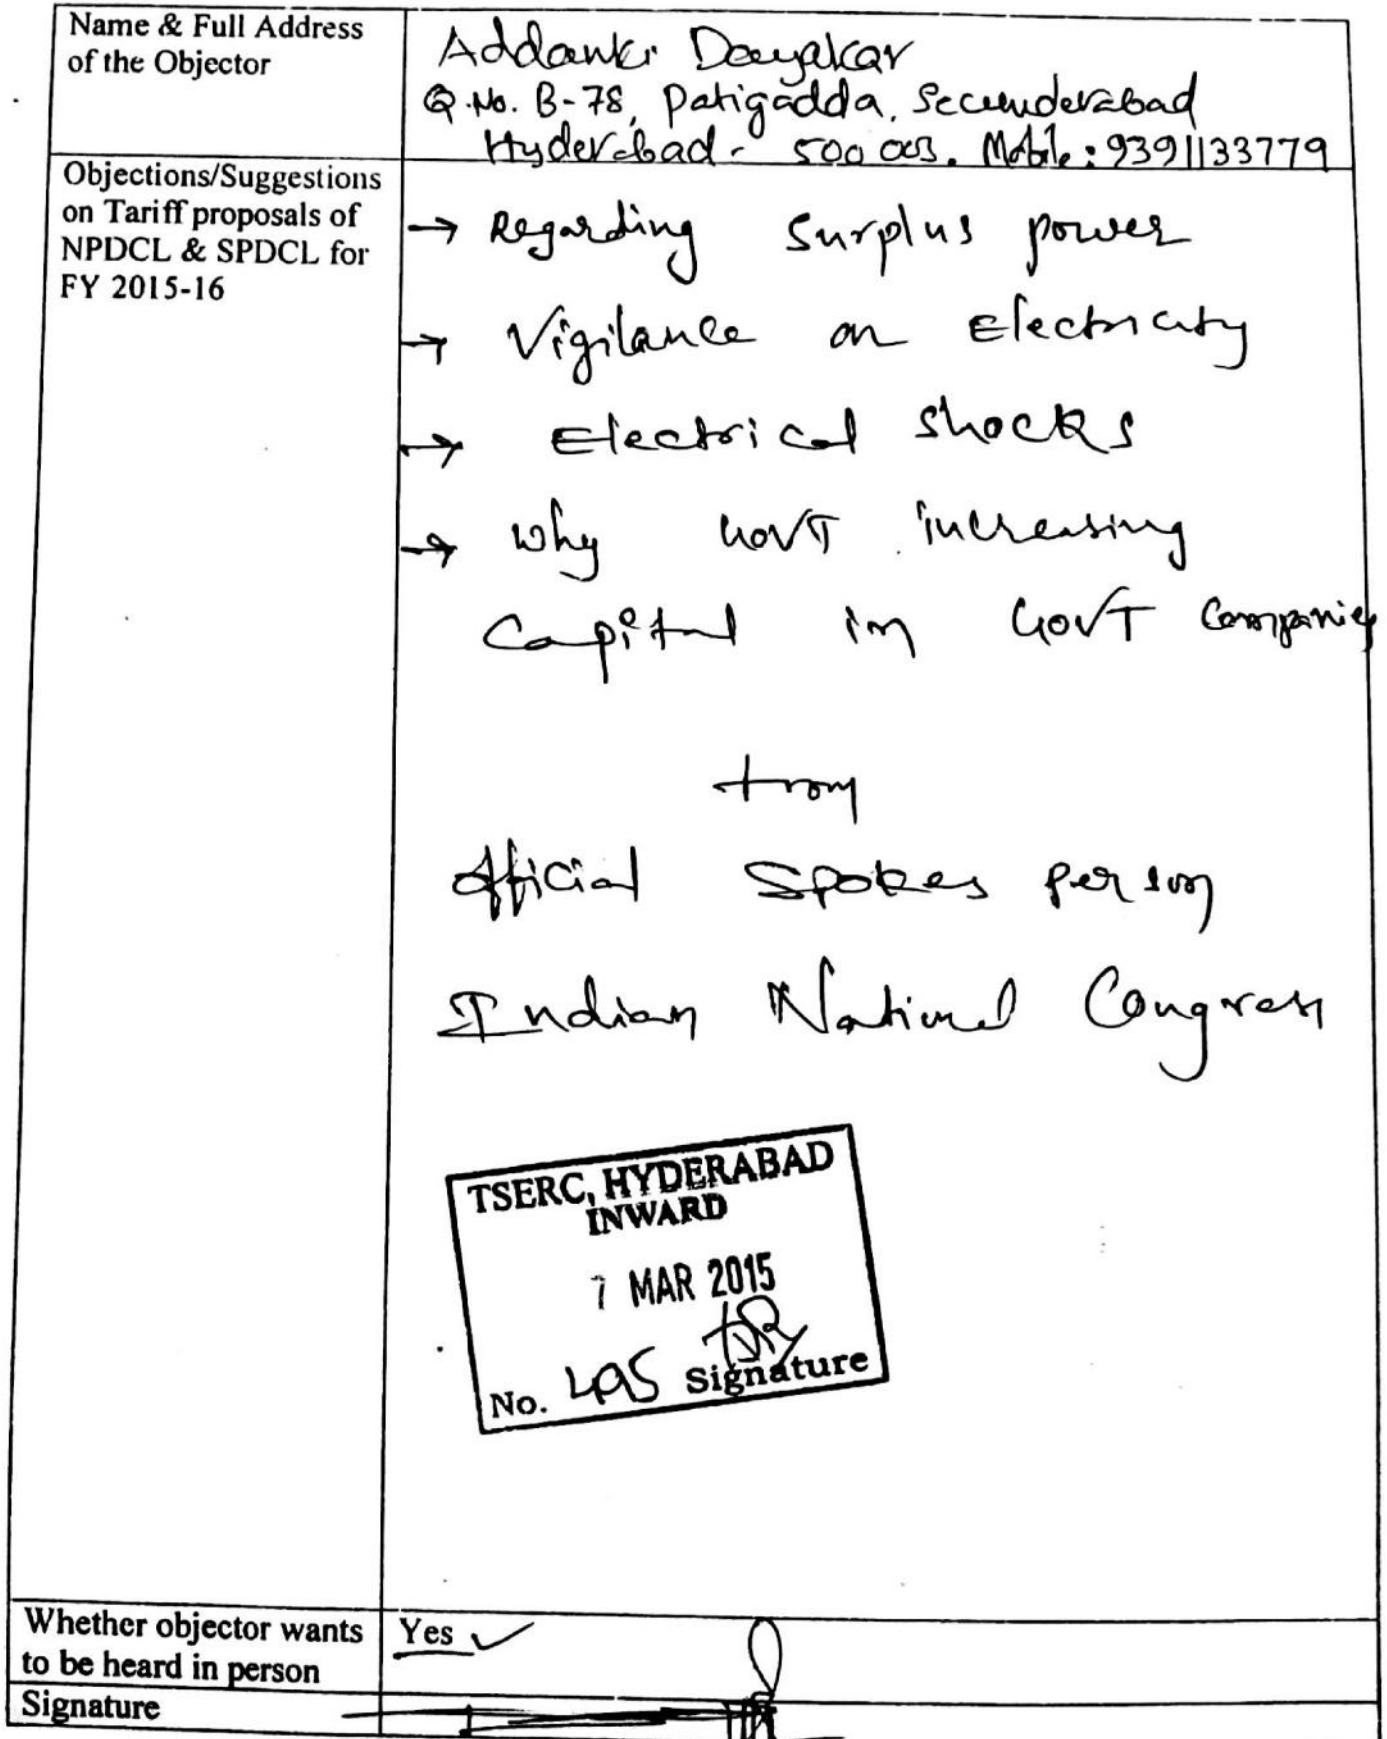 Name & Full Address
of the Objector
Addanki Dayakar
Q.No. B-78, Patigadda, Secunderabad
Hyderabad - 500 003. Mobile: 9391133779
Objections/Suggestions
on Tariff proposals of
NPDCL & SPDCL for
FY 2015-16
→ Regarding surplus power
→ Vigilance on Electricity
→ Electrical shocks
→ Why GOVT increasing
Capital in GOVT Companies
from
Official Spokes person
Indian National Congress
TSERC, HYDERABAD
INWARD
7 MAR 2015
No. 495 Signature
Whether objector wants
to be heard in person
Yes ✓
Signature